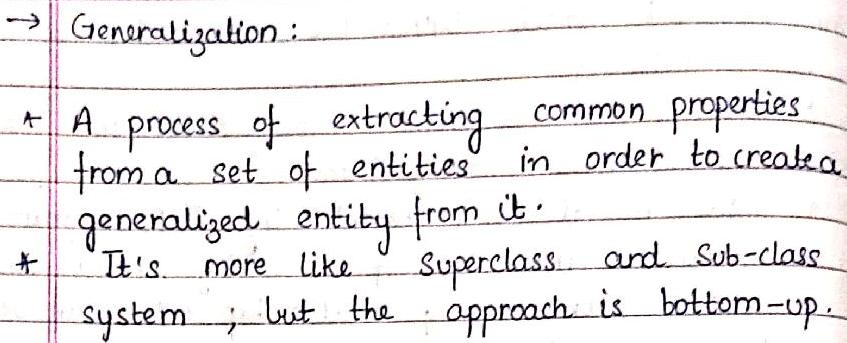 → Generalization :
* A process of extracting common properties
from a set of entities in order to create a
generalized entity from it.
* It's more like Superclass and Sub-class
system ; but the approach is bottom-up.